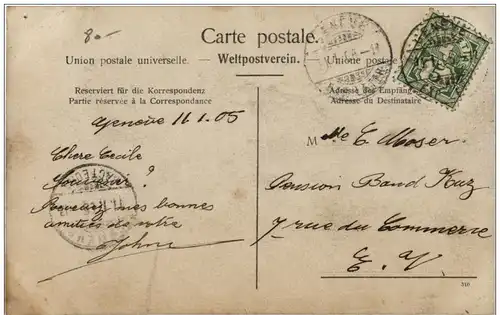 80-
Carte postale.
Union postale universelle. — Weltpostverein. — Unione postale
Reserviert für die Korrespondenz
Partie réservée à la Correspondance
Adresse des Empfäng
Adresse du Destinataire
Genève 11.1.05
Chère Cécile
?
Recevez mes bonnes
amitiés de votre
John
Mlle C. Moser
Pension Band Kuz
7 rue du Commerce
E. V.
310